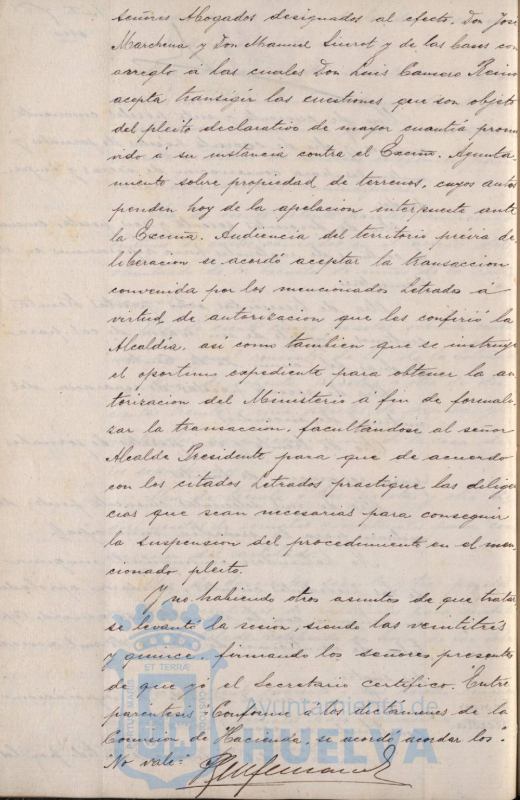 señores Abogados designados al efecto, Don José
Marchena y Don Manuel Siurot y de las bases con
arreglo á las cuales Don Luis Camoso Reino
acepta transigir las cuestiones que son objeto
del pleito declarativo de mayor cuantía promo
vido á su instancia contra el Excmo. Ayunta
miento sobre propiedad de terrenos, cuyos autos
penden hoy de la apelacion interpuesta ante
la Excma. Audiencia del territorio prévia de
liberacion se acordó aceptar la transaccion
convenida por los mencionados Letrados á
virtud de autorizacion que les confirió la
Alcaldía, así como tambien que se instruya
el oportuno expediente para obtener la au
torizacion del Ministerio á fin de formali
zar la transaccion, facultándose al señor
Alcalde Presidente para que de acuerdo
con los citados Letrados practique las dilige
cias que sean necesarias para conseguir
la suspension del procedimiento en el men
cionado pleito.
Y no habiendo otros asuntos de que tratar
se levantó la sesion, siendo las veintitres
y quince, firmando los señores presentes
de que yó el Secretario certifico. Entre
parentesis "Conforme a los dictámenes de la
Comision de Hacienda, se acordó acordar los".
No vale=
ET TERRÆ
Ayuntamiento de
HUELVA